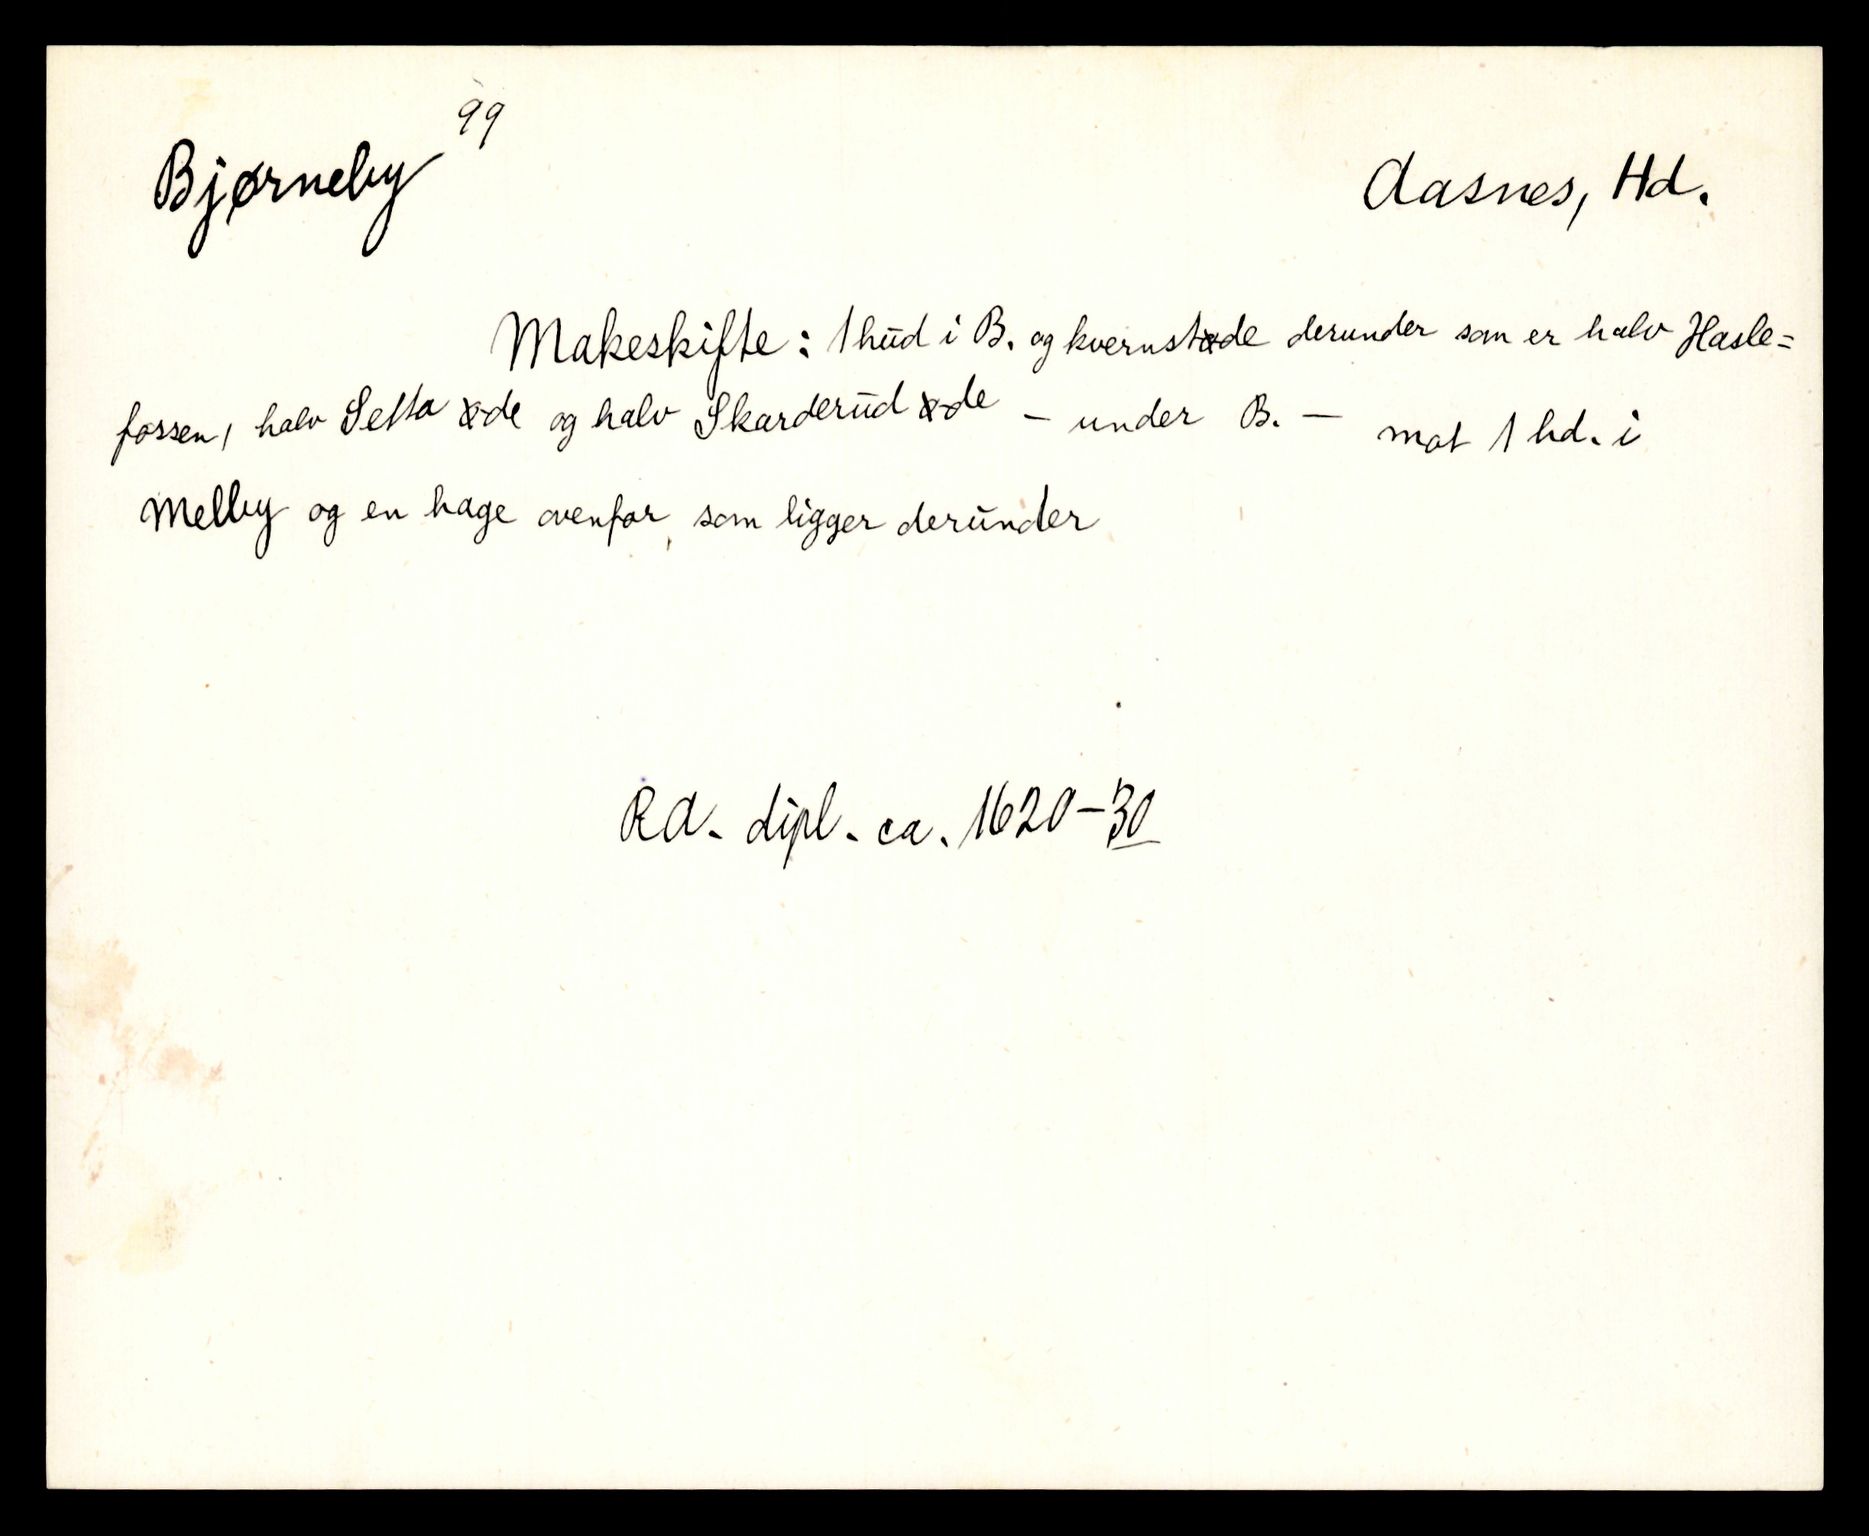 Bjørneby 99
Aasnes, Hd.
Makeskifte: 1 hud i B. og kvernstøde derunder som er halv Hasle=
fossen, halv Setta øde og halv Skarderud øde – under B. – mot 1 hd. i
Melby og en hage ovenfor som ligger derunder
RA. dipl. ca. 1620–30